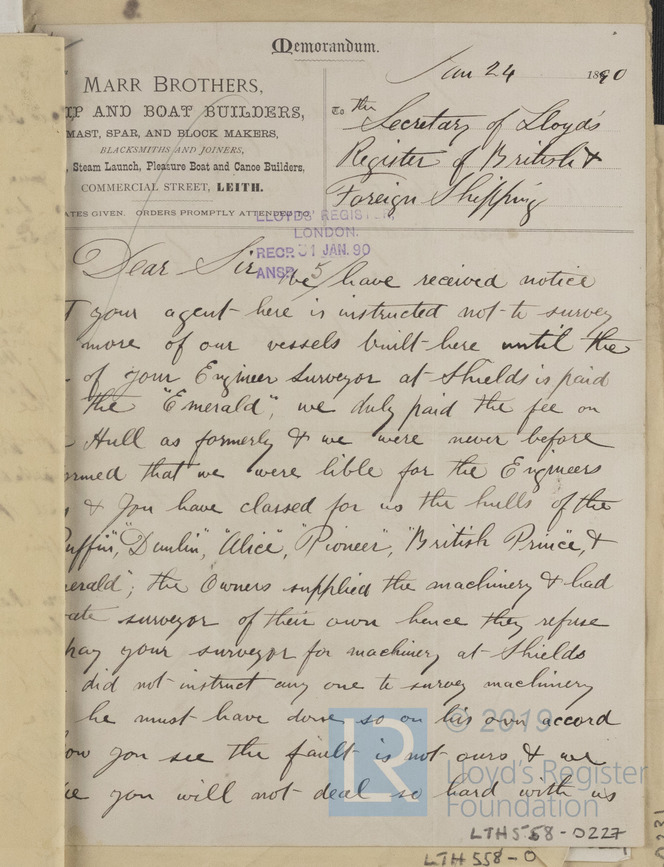 Memorandum.
Jan 24 1890
MARR BROTHERS,
IP AND BOAT BUILDERS,
MAST, SPAR, AND BLOCK MAKERS,
BLACKSMITHS AND JOINERS,
, Steam Launch, Pleasure Boat and Canoe Builders,
COMMERCIAL STREET, LEITH.
ATES GIVEN. ORDERS PROMPTLY ATTENDED TO.
To the
Secretary of Lloyd's
Register of British &
Foreign Shipping
LLOYDS' REGISTER,
LONDON.
RECD 31 JAN. 90
ANSD 5
Dear Sir We have received notice
t your agent here is instructed not to survey
more of our vessels built here until the
of your Engineer Surveyor at Shields is paid
the "Emerald", we duly paid the fee on
Hull as formerly & we were never before
ormed that we were lible for the Engineers
s & you have classed for us the hulls of the
uffin", "Dunlin", "Alice", "Pioneer", "British Prince", &
erald"; the Owners supplied the machinery & had
ate surveyor of their own hence they refuse
pay your surveyor for machinery at Shields
did not instruct any one to survey machinery
he must have done so on his own accord
ow you see the fault is not ours & we
e you will not deal so hard with us
© 2019
LR
Lloyd's Register
Foundation
LTH558-0227
LTH 558-0
0231